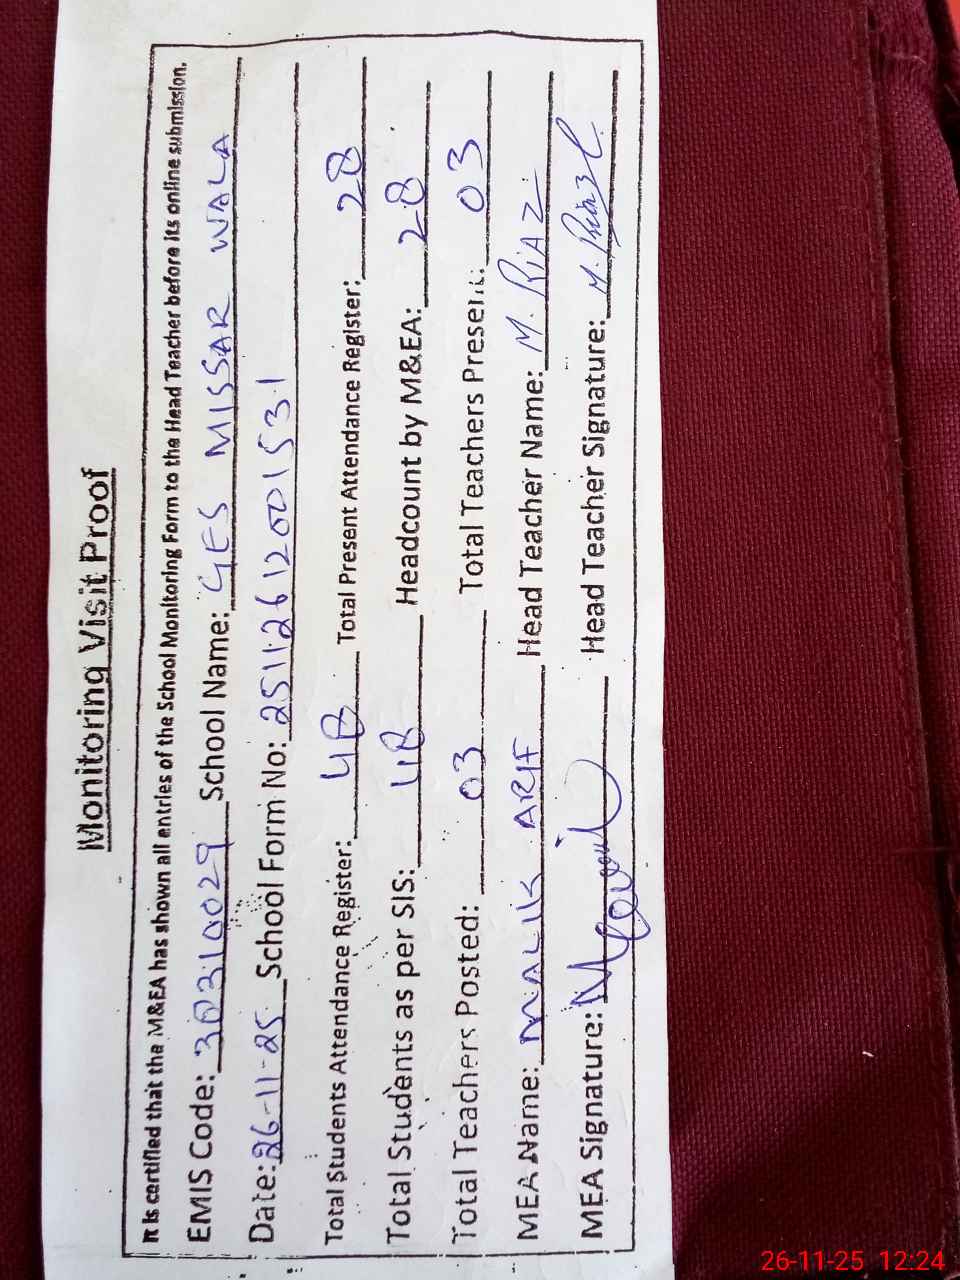 Monitoring Visit Proof
It is certified that the M&EA has shown all entries of the School Monitoring Form to the Head Teacher before its online submission.
EMIS Code: 36310029 School Name: GES MISSAR WALA
Date: 26-11-25 School Form No: 25112612001531
Total Students Attendance Register: 48 Total Present Attendance Register: 28
Total Students as per SIS: 48 Headcount by M&EA: 28
Total Teachers Posted: 03 Total Teachers Present: 03
MEA Name: MALIK ARIF Head Teacher Name: M. RIAZ
MEA Signature: Head Teacher Signature: M. Riaz
26-11-25 12:24